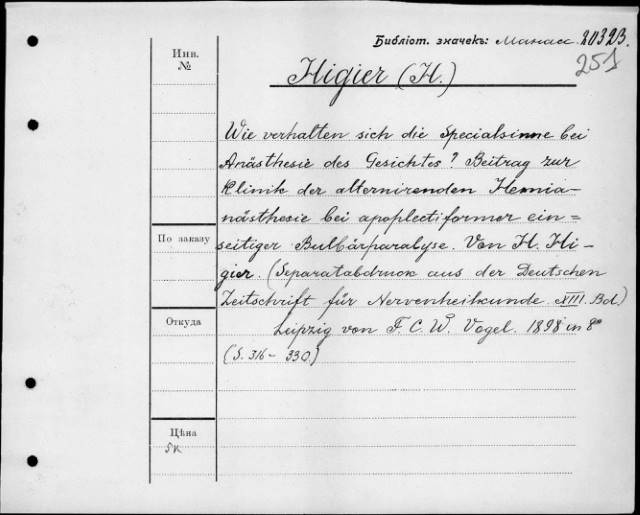 Библіот. значекъ: Манасс. 20323.
251
Инв.
№
Higier (H.)
Wie verhalten sich die Specialsinne bei
Anästhesie des Gesichtes? Beitrag zur
Klinik der alternirenden Hemia-
nästhesie bei apoplectiformer ein=
seitiger Bulbärparalyse. Von H. Hi-
gier. (Separatabdruck aus der Deutschen
Zeitschrift für Nervenheilkunde. XIII. Bd.)
Leipzig von F. C. W. Vogel. 1898 in 8°
(S. 316 - 330)
По заказу
Откуда
Цѣна
5к